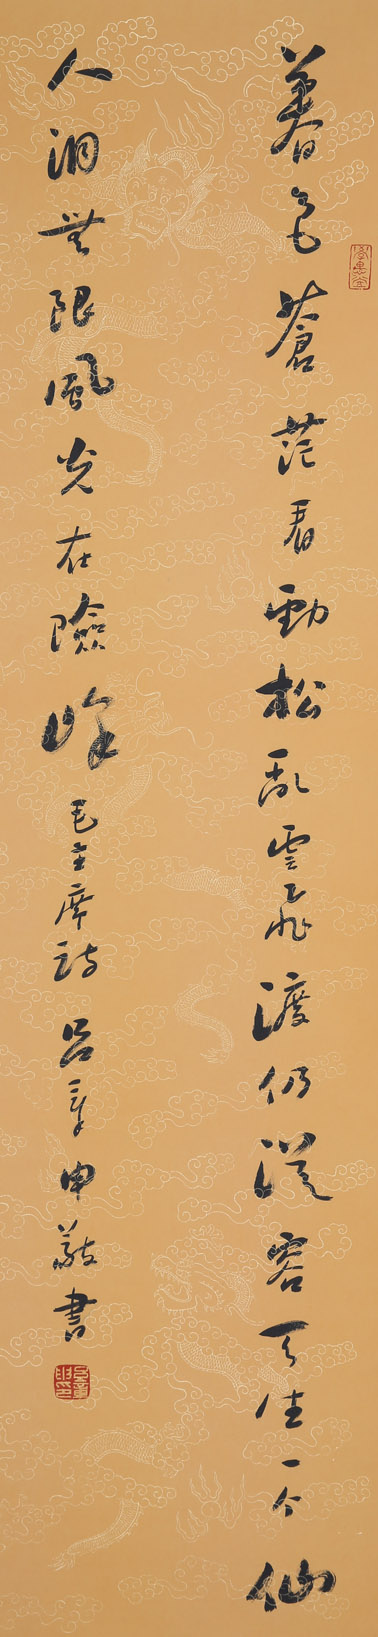 暮色蒼茫看勁松乱雲飛渡仍從容天生一个仙
人洞無限風光在險峰毛主席詩呂章申敬書
呂章申印